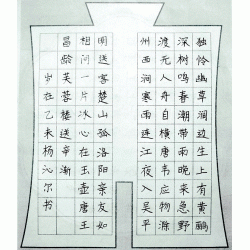 独怜幽草涧边生上有黄鹂
深树鸣春潮带雨晚来急野
渡无人舟自横唐韦应物滁
州西涧寒雨连江夜入吴平
明送客楚山孤洛阳亲友如
相问一片冰心在玉壶唐王
昌龄芙蓉楼送辛渐
岁在乙未杨沁尔书